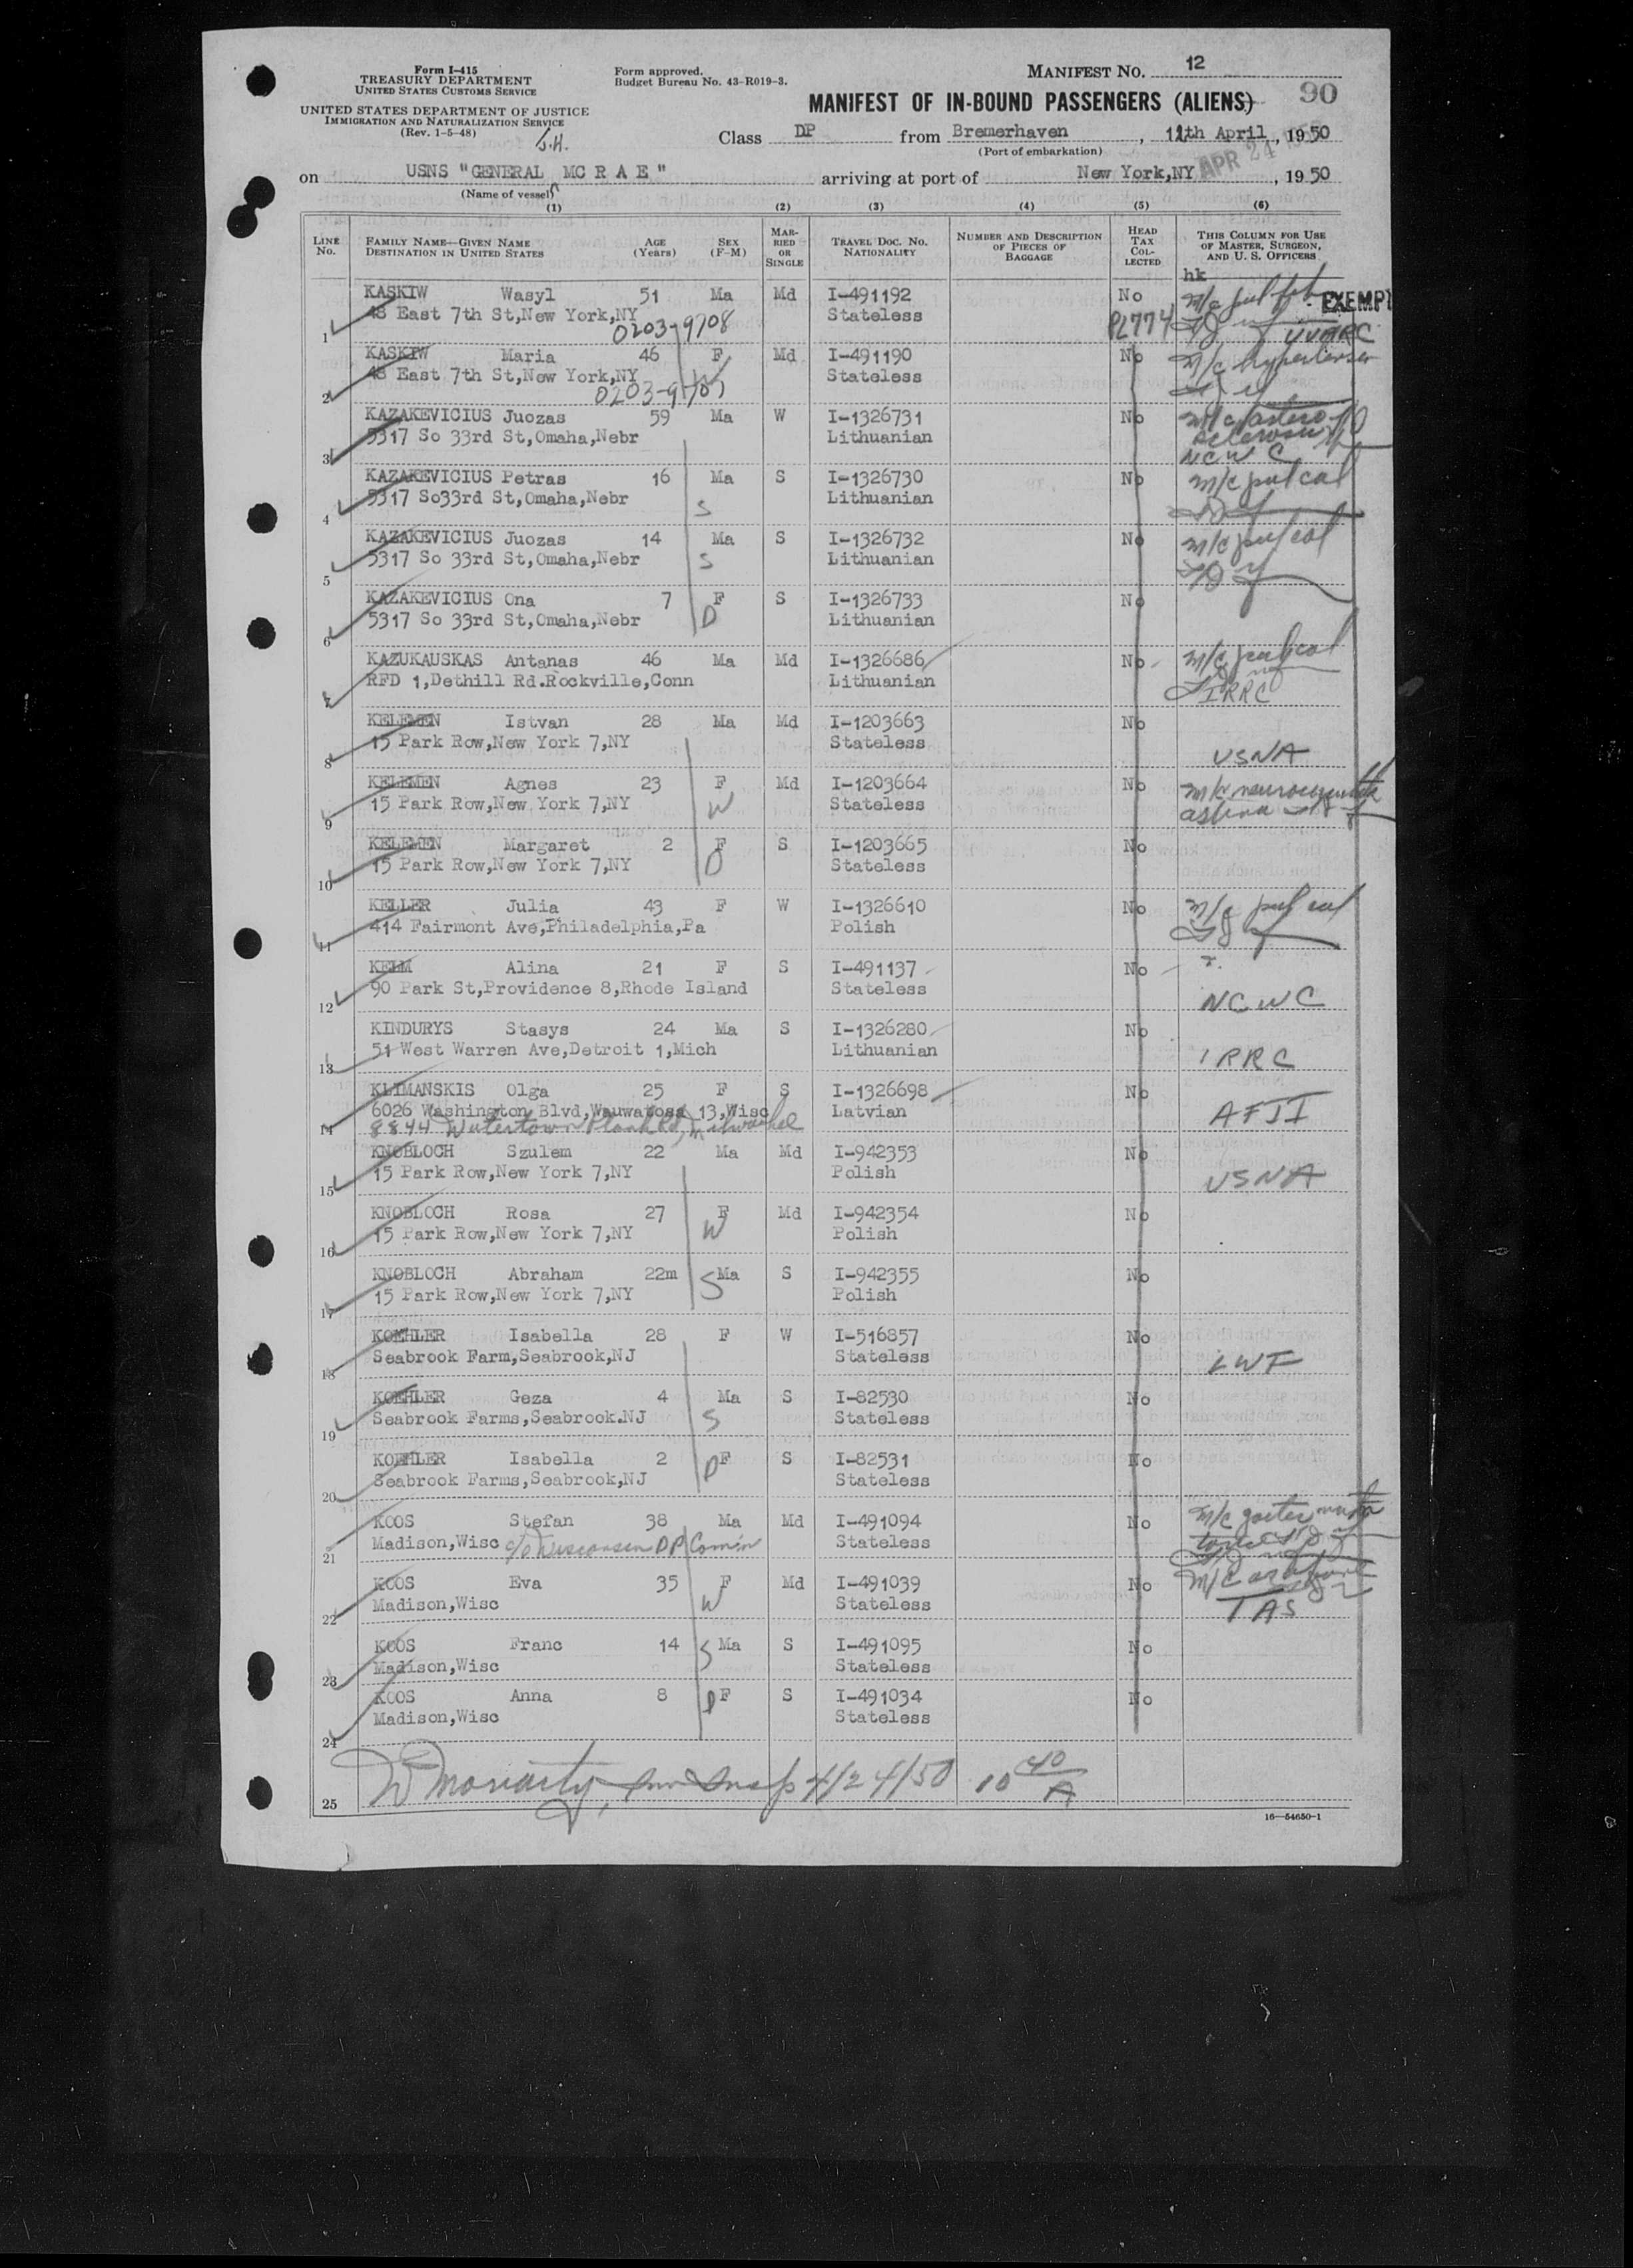 Form I-415
TREASURY DEPARTMENT
UNITED STATES CUSTOMS SERVICE
UNITED STATES DEPARTMENT OF JUSTICE
IMMIGRATION AND NATURALIZATION SERVICE
(Rev. 1-5-48)
Form approved.
Budget Bureau No. 43-R019-3.
MANIFEST NO. 12
MANIFEST OF IN-BOUND PASSENGERS (ALIENS) 90
Class DP from Bremerhaven, 12th April, 1950
(Port of embarkation)
APR 24 1950
on USNS "GENERAL MC R A E" arriving at port of New York,NY, 1950
(Name of vessel)
(1) (2) (3) (4) (5) (6)
LINE NO. FAMILY NAME—GIVEN NAME DESTINATION IN UNITED STATES AGE (Years) SEX (F-M) MARRIED OR SINGLE TRAVEL DOC. NO. NATIONALITY NUMBER AND DESCRIPTION OF PIECES OF BAGGAGE HEAD TAX COLLECTED THIS COLUMN FOR USE OF MASTER, SURGEON, AND U. S. OFFICERS
hk
KASKIW Wasyl 51 Ma Md I-491192 No EXEMPT
1 48 East 7th St,New York,NY Stateless PL774
0203-9708
KASKIW Maria 46 F Md I-491190 No m/c hypertension
2 48 East 7th St,New York,NY W Stateless
KAZAKEVICIUS Juozas 59 Ma W I-1326731 No
3 5317 So 33rd St,Omaha,Nebr Lithuanian
NCWC
KAZAKEVICIUS Petras 16 Ma S I-1326730 No m/c pul cal
4 5317 So33rd St,Omaha,Nebr S Lithuanian
KAZAKEVICIUS Juozas 14 Ma S I-1326732 No m/c pul cal
5 5317 So 33rd St,Omaha,Nebr S Lithuanian
KAZAKEVICIUS Ona 7 F S I-1326733 No
6 5317 So 33rd St,Omaha,Nebr D Lithuanian
KAZUKAUSKAS Antanas 46 Ma Md I-1326686 No m/c pul cal
7 RFD 1,Dethill Rd.Rockville,Conn Lithuanian IRRC
KELEMEN Istvan 28 Ma Md I-1203663 No
8 15 Park Row,New York 7,NY Stateless USNA
KELEMEN Agnes 23 F Md I-1203664 No
9 15 Park Row,New York 7,NY W Stateless
KELEMEN Margaret 2 F S I-1203665 No
10 15 Park Row,New York 7,NY D Stateless
KELLER Julia 43 F W I-1326610 No m/c pul cal
11 414 Fairmont Ave,Philadelphia,Pa Polish
KELM Alina 21 F S I-491137 No
12 90 Park St,Providence 8,Rhode Island Stateless NCWC
KINDURYS Stasys 24 Ma S I-1326280 No
13 51 West Warren Ave,Detroit 1,Mich Lithuanian IRRC
KLIMANSKIS Olga 25 F S I-1326698 No
14 6026 Washington Blvd,Wauwatosa 13,Wisc Latvian AFII
8844 Watertown Plank Rd, Milwaukee
KNOBLOCH Szulem 22 Ma Md I-942353 No
15 15 Park Row,New York 7,NY Polish USNA
KNOBLOCH Rosa 27 F Md I-942354 No
16 15 Park Row,New York 7,NY W Polish
KNOBLOCH Abraham 22m Ma S I-942355 No
17 15 Park Row,New York 7,NY S Polish
KOEHLER Isabella 28 F W I-516857 No
18 Seabrook Farm,Seabrook,NJ Stateless LWF
KOEHLER Geza 4 Ma S I-82530 No
19 Seabrook Farms,Seabrook.NJ S Stateless
KOEHLER Isabella 2 F S I-82531 No
20 Seabrook Farms,Seabrook,NJ D Stateless
KOOS Stefan 38 Ma Md I-491094 No m/c goiter
21 Madison,Wisc c/o Wisconsin DP Comm Stateless
KOOS Eva 35 F Md I-491039 No
22 Madison,Wisc W Stateless TAS
KOOS Franc 14 Ma S I-491095 No
23 Madison,Wisc S Stateless
KOOS Anna 8 F S I-491034 No
24 Madison,Wisc D Stateless
25 W Moriarty, Imm Insp 4/24/50 10 40/A
16—54650-1